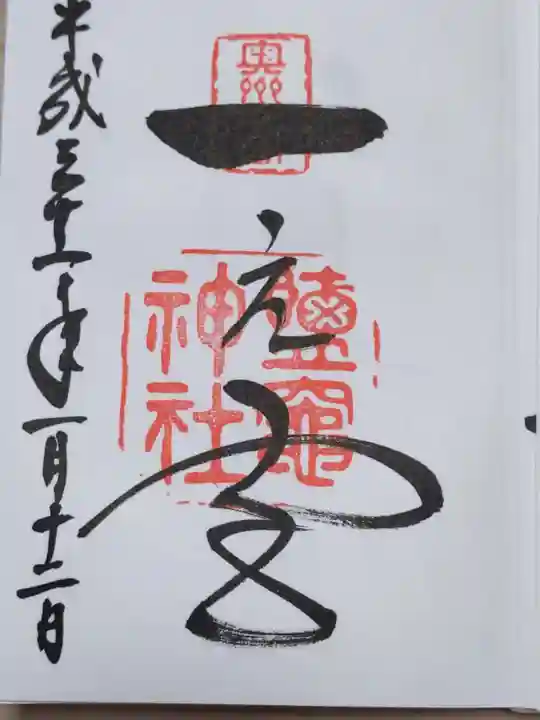 奥州
一之宮
鹽竈
神社
平成三十一年一月十二日